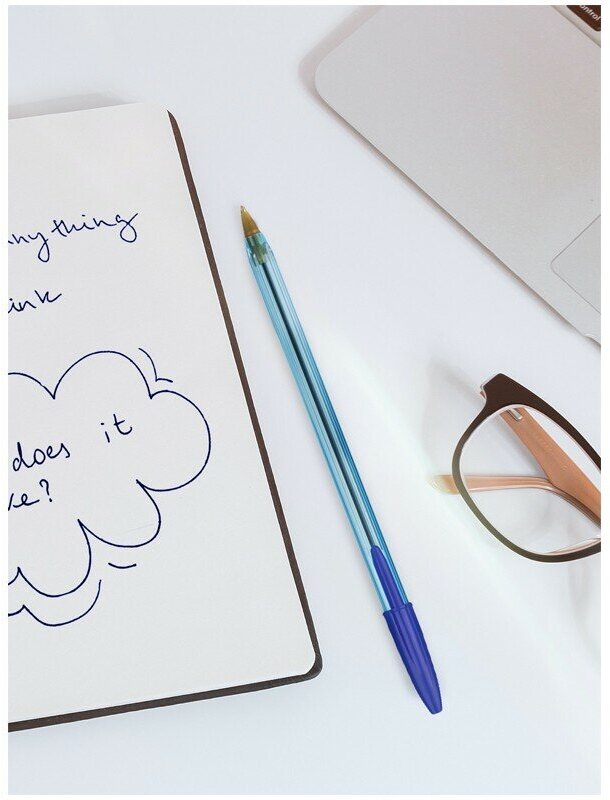 anything
ink
does it
ke?
control